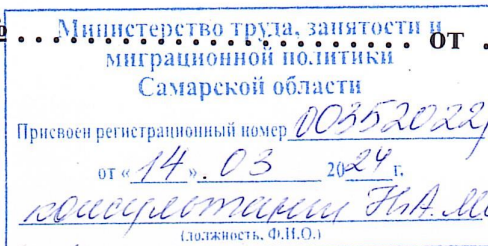 Министерство труда, занятости и
от
миграционной политики
Самарской области
Присвоен регистрационный номер 00352022
от «14». 03 2024 г.
консультант Н.А.
(должность, Ф.И.О.)